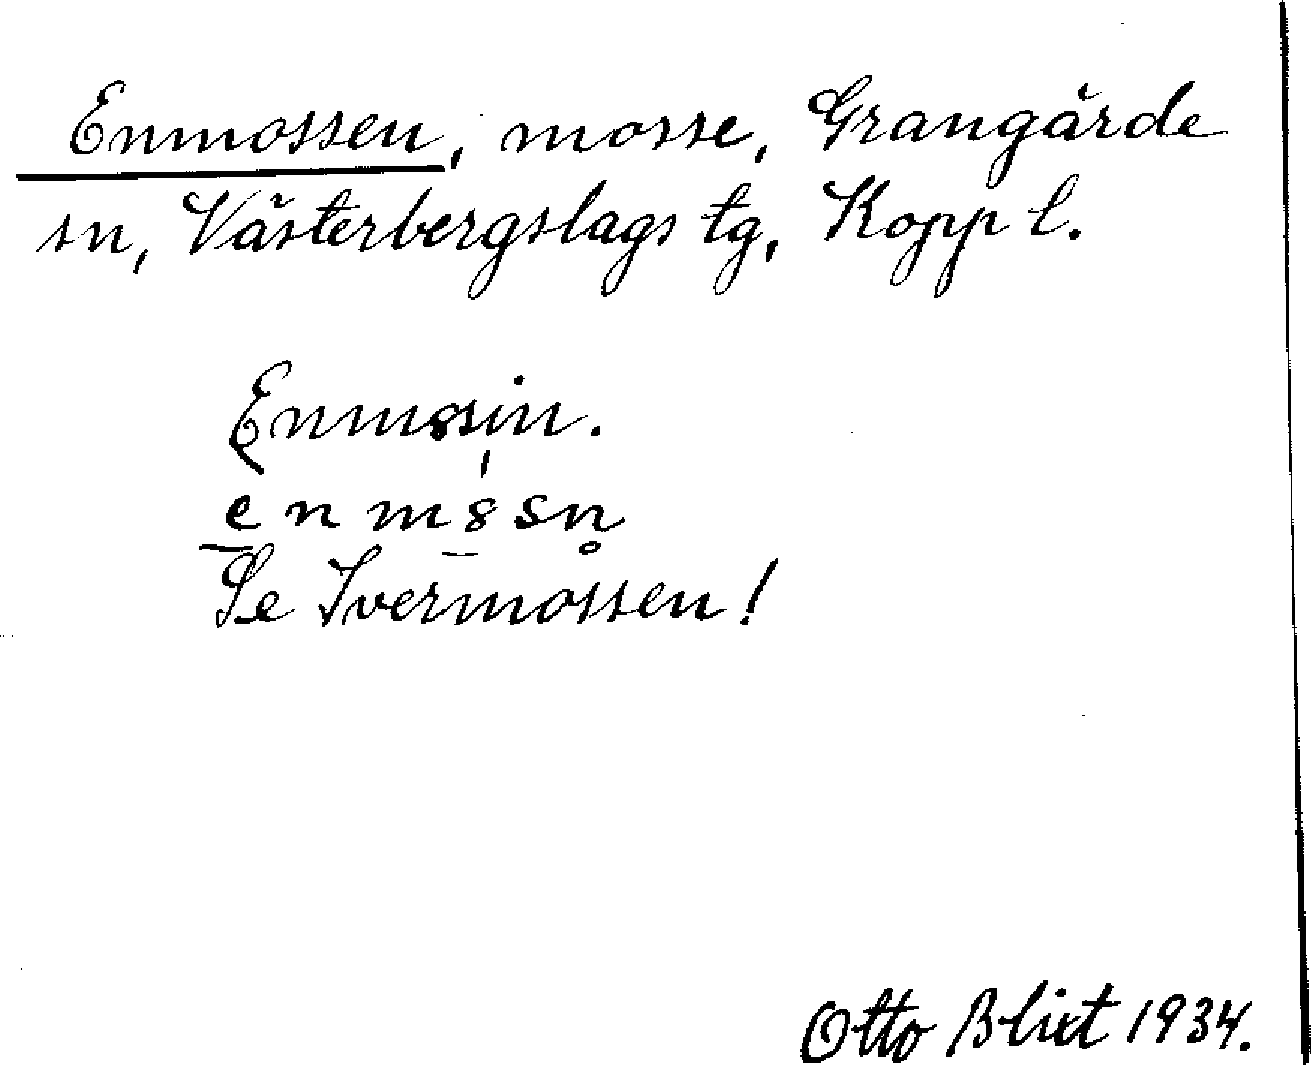 Enmossen, mosse, Grangärde
sn, Västerbergslags tg, Kopp l.
Enmssin.
e n m s sn̥
Se Ivermossen!
Otto Blixt 1934.